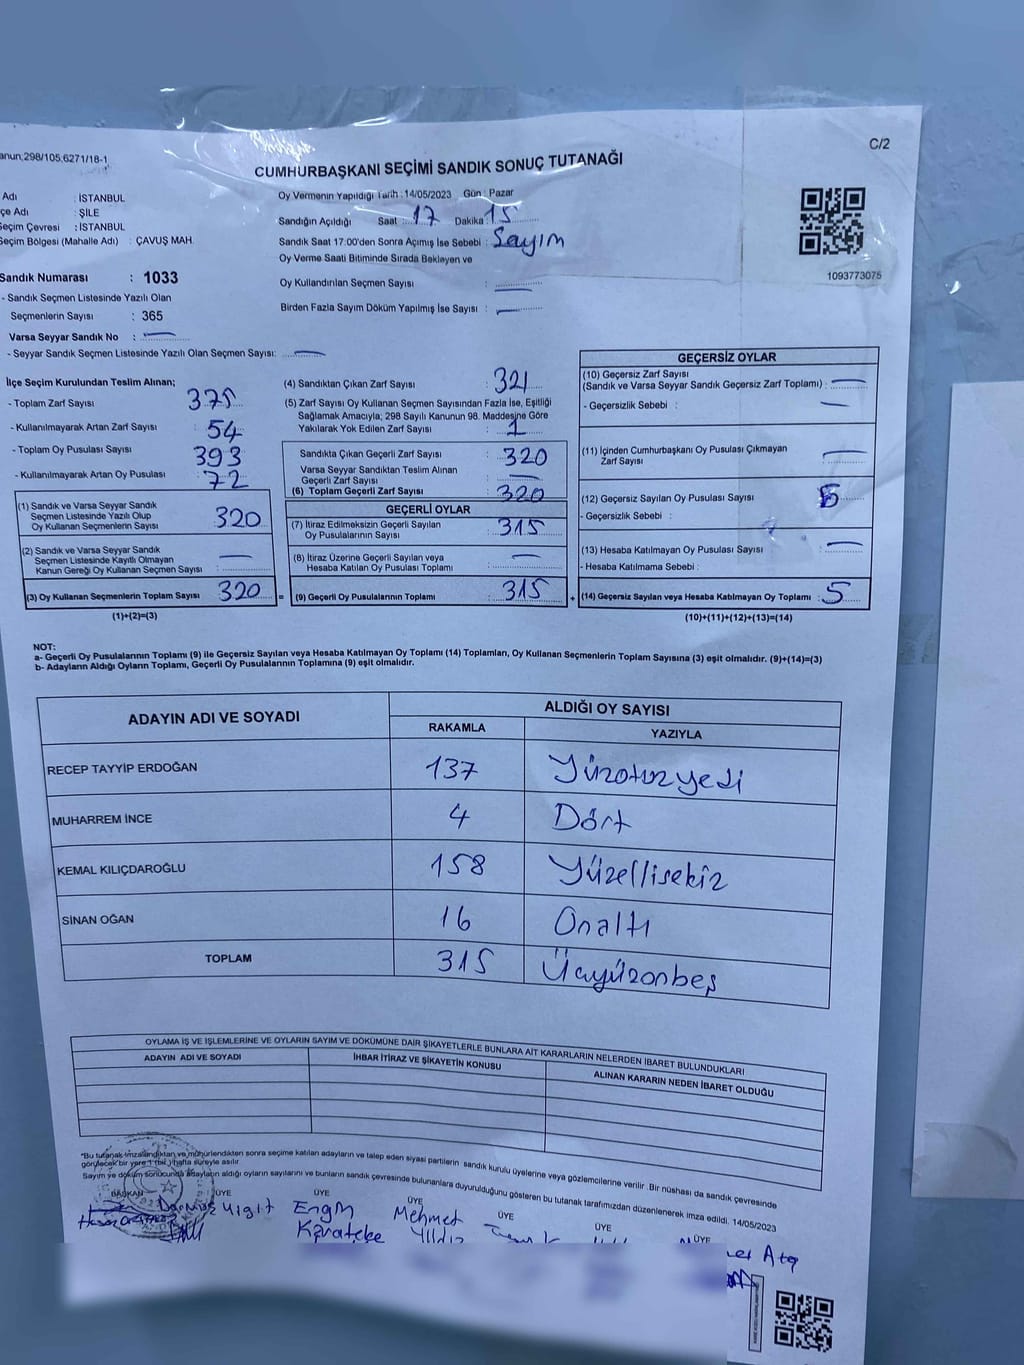 anun;298/105,6271/18-1
C/2
CUMHURBAŞKANI SEÇİMİ SANDIK SONUÇ TUTANAĞI
Adı : İSTANBUL
çe Adı : ŞİLE
Seçim Çevresi : İSTANBUL
Seçim Bölgesi (Mahalle Adı) : ÇAVUŞ MAH.
Sandık Numarası : 1033
- Sandık Seçmen Listesinde Yazılı Olan
Seçmenlerin Sayısı : 365
Varsa Seyyar Sandık No : —
- Seyyar Sandık Seçmen Listesinde Yazılı Olan Seçmen Sayısı: —
Oy Vermenin Yapıldığı Tarih : 14/05/2023 Gün : Pazar
Sandığın Açıldığı Saat : 17 Dakika 15
Sandık Saat 17:00'den Sonra Açımış İse Sebebi : Sayım
Oy Verme Saati Bitiminde Sırada Bekleyen ve
Oy Kullandırılan Seçmen Sayısı : —
Birden Fazla Sayım Döküm Yapılmış İse Sayısı : —
1093773075
İlçe Seçim Kurulundan Teslim Alınan;
- Toplam Zarf Sayısı 375
- Kullanılmayarak Artan Zarf Sayısı 54
- Toplam Oy Pusulası Sayısı 393
- Kullanılmayarak Artan Oy Pusulası 72
(1) Sandık ve Varsa Seyyar Sandık
Seçmen Listesinde Yazılı Olup
Oy Kullanan Seçmenlerin Sayısı 320
(2) Sandık ve Varsa Seyyar Sandık
Seçmen Listesinde Kayıtlı Olmayan
Kanun Gereği Oy Kullanan Seçmen Sayısı —
(3) Oy Kullanan Seçmenlerin Toplam Sayısı 320
(1)+(2)=(3)
(4) Sandıktan Çıkan Zarf Sayısı : 321
(5) Zarf Sayısı Oy Kullanan Seçmen Sayısından Fazla İse, Eşitliği
Sağlamak Amacıyla; 298 Sayılı Kanunun 98. Maddesine Göre
Yakılarak Yok Edilen Zarf Sayısı : 1
Sandıkta Çıkan Geçerli Zarf Sayısı : 320
Varsa Seyyar Sandıktan Teslim Alınan
Geçerli Zarf Sayısı : —
(6) Toplam Geçerli Zarf Sayısı : 320
GEÇERLİ OYLAR
(7) İtiraz Edilmeksizin Geçerli Sayılan
Oy Pusulalarının Sayısı : 315
(8) İtiraz Üzerine Geçerli Sayılan veya
Hesaba Katılan Oy Pusulası Toplamı : —
= (9) Geçerli Oy Pusulalarının Toplamı : 315
GEÇERSİZ OYLAR
(10) Geçersiz Zarf Sayısı
(Sandık ve Varsa Seyyar Sandık Geçersiz Zarf Toplamı) : —
- Geçersizlik Sebebi : —
(11) İçinden Cumhurbaşkanı Oy Pusulası Çıkmayan
Zarf Sayısı : —
(12) Geçersiz Sayılan Oy Pusulası Sayısı : 5
- Geçersizlik Sebebi :
(13) Hesaba Katılmayan Oy Pusulası Sayısı : —
- Hesaba Katılmama Sebebi :
+ (14) Geçersiz Sayılan veya Hesaba Katılmayan Oy Toplamı : 5
(10)+(11)+(12)+(13)=(14)
NOT:
a- Geçerli Oy Pusulalarının Toplamı (9) ile Geçersiz Sayılan veya Hesaba Katılmayan Oy Toplamı (14) Toplamları, Oy Kullanan Seçmenlerin Toplam Sayısına (3) eşit olmalıdır. (9)+(14)=(3)
b- Adayların Aldığı Oyların Toplamı, Geçerli Oy Pusulalarının Toplamına (9) eşit olmalıdır.
ADAYIN ADI VE SOYADI
ALDIĞI OY SAYISI
RAKAMLA YAZIYLA
RECEP TAYYİP ERDOĞAN 137 Yüzotuzyedi
MUHARREM İNCE 4 Dört
KEMAL KILIÇDAROĞLU 158 Yüzellisekiz
SİNAN OĞAN 16 Onaltı
TOPLAM 315 Üçyüzonbeş
OYLAMA İŞ VE İŞLEMLERİNE VE OYLARIN SAYIM VE DÖKÜMÜNE DAİR ŞİKAYETLERLE BUNLARA AİT KARARLARIN NELERDEN İBARET BULUNDUKLARI
ADAYIN ADI VE SOYADI İHBAR İTİRAZ VE ŞİKAYETİN KONUSU ALINAN KARARIN NEDEN İBARET OLDUĞU
*Bu tutanak imzalandıktan ve mühürlendikten sonra seçime katılan adayların ve talep eden siyasi partilerin sandık kurulu üyelerine veya gözlemcilerine verilir .Bir nüshası da sandık çevresinde
görülecek bir yere 1 (bir) hafta süreyle asılır
Sayım ve döküm sonucunda adayların aldığı oyların sayılarını ve bunların sandık çevresinde bulunanlara duyurulduğunu gösteren bu tutanak tarafımızdan düzenlenerek imza edildi. 14/05/2023
BAŞKAN ÜYE ÜYE ÜYE ÜYE ÜYE ÜYE
Yigit
Engin
Karateke
Mehmet
Yıldız
Ata